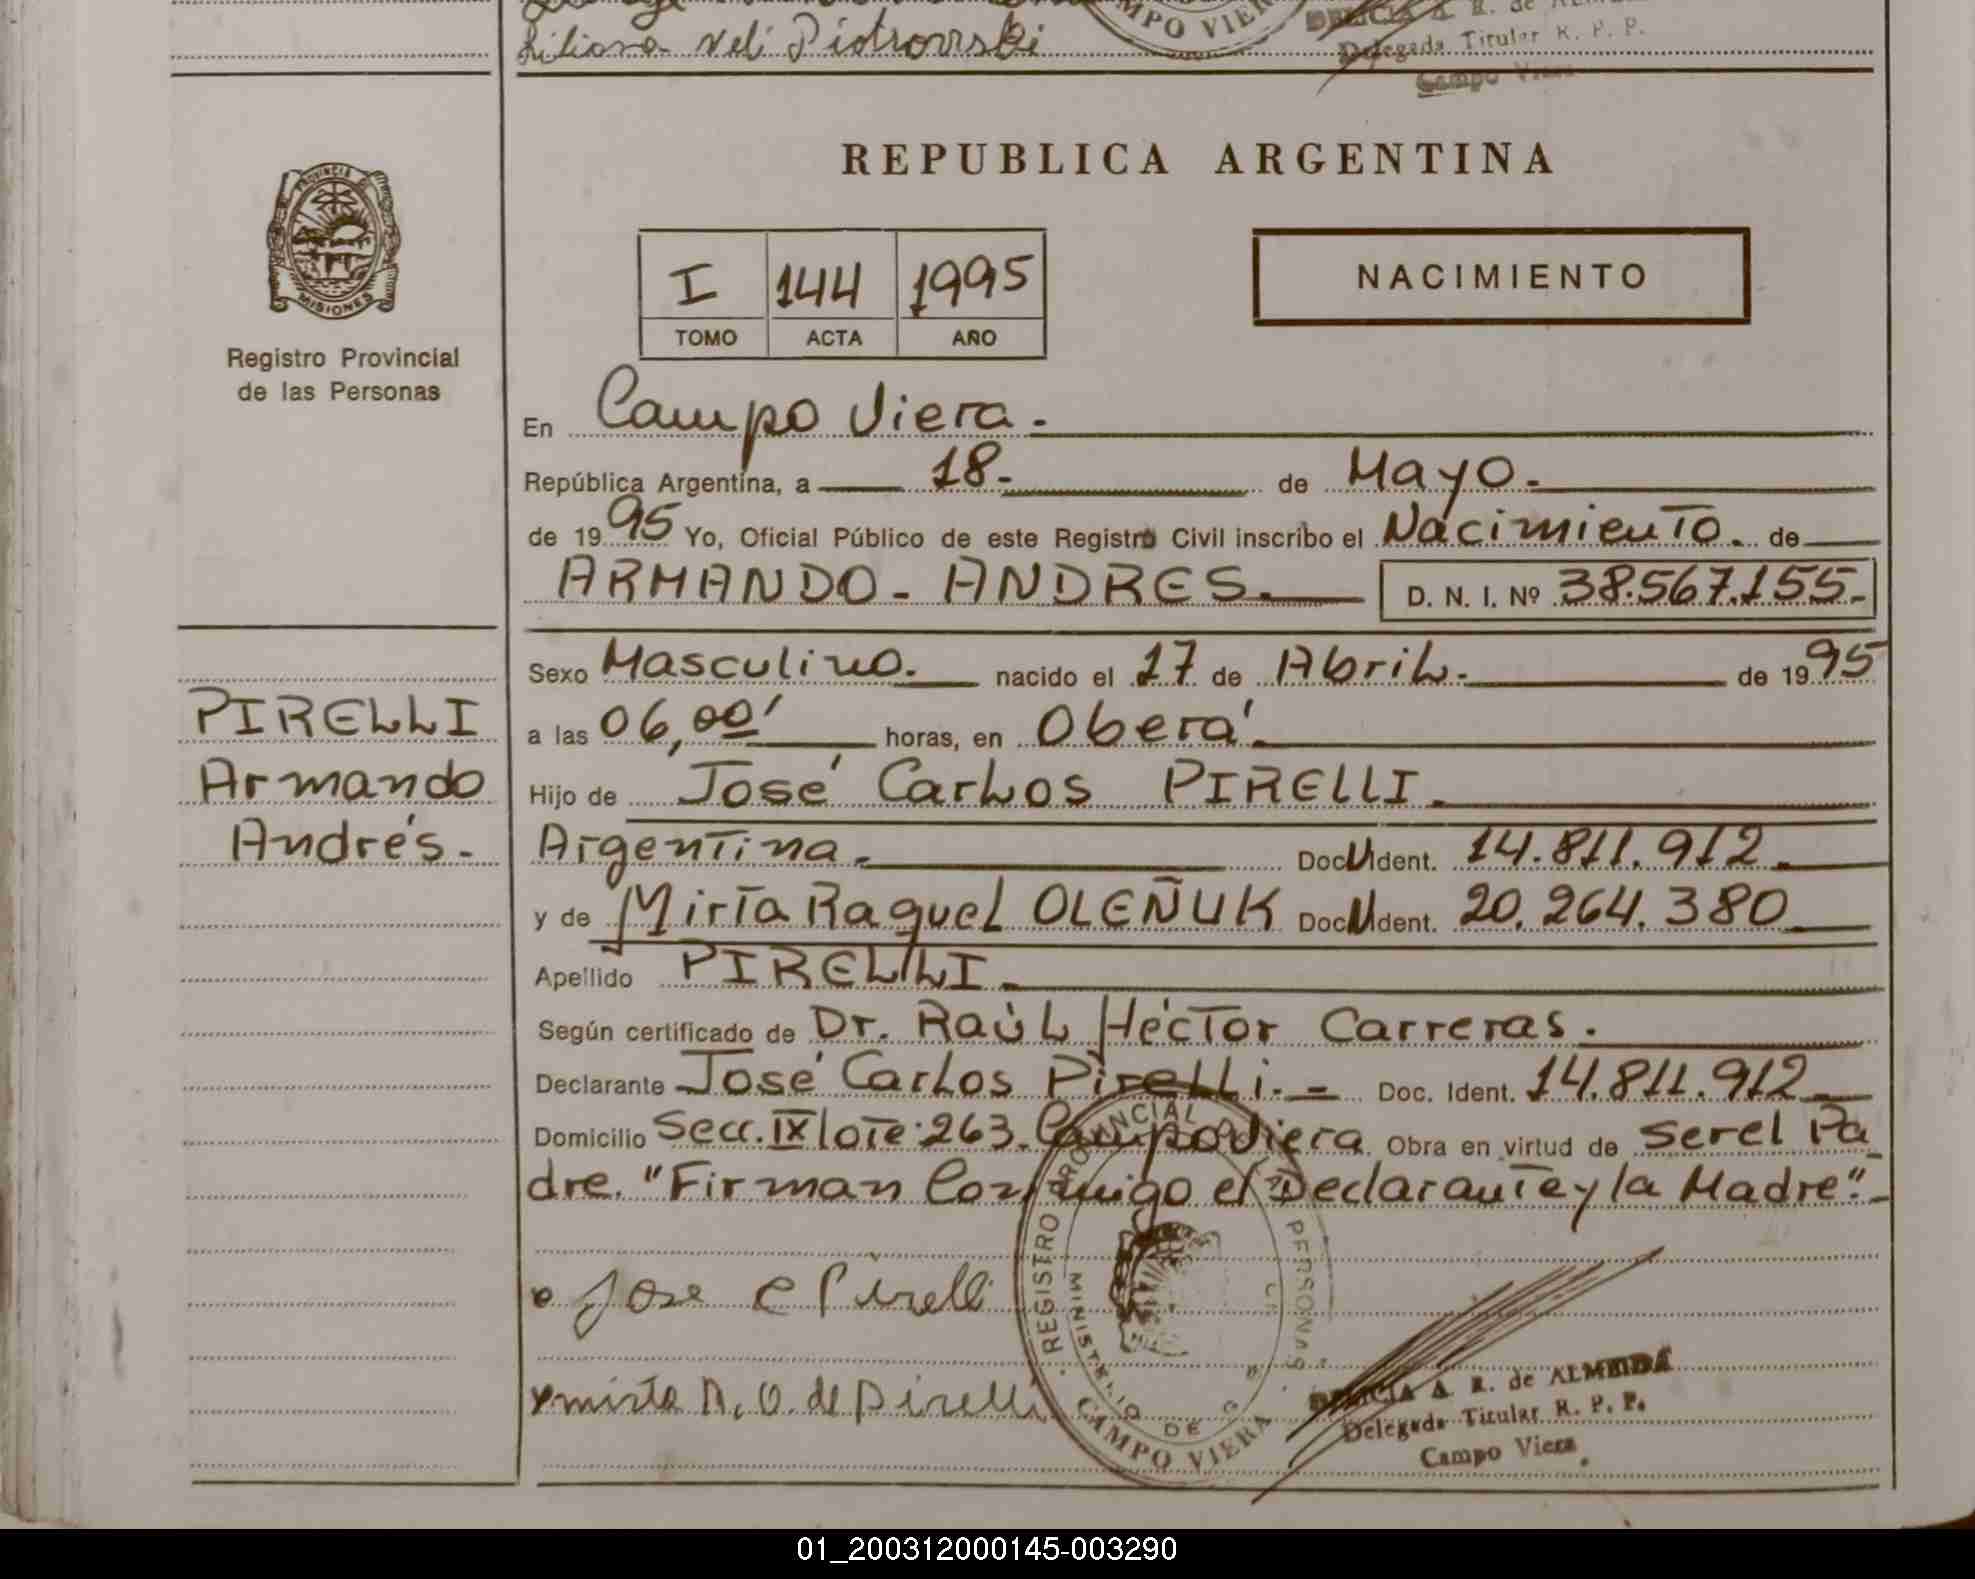 Liliana Neli Piotrowski
CAMPO VIERA
DELICIA A. R. de ALMEIDA
Delegada Titular R. P. P.
Campo Viera
REPUBLICA ARGENTINA
PROVINCIA DE
MISIONES
Registro Provincial
de las Personas
I 144 1995
TOMO ACTA AÑO
NACIMIENTO
En Campo Viera.-
República Argentina, a 18- de Mayo.-
de 1995 Yo, Oficial Público de este Registro Civil inscribo el Nacimiento. de
ARMANDO - ANDRES.- D. N. I. Nº 38.567.155.-
Sexo Masculino. nacido el 17 de Abril.- de 1995
a las 06,00' horas, en Oberá.-
Hijo de José Carlos PIRELLI.-
Argentina.- Doc. Ident. 14.811.912.-
y de Mirta Raquel OLEÑUK Doc. Ident. 20.264.380
Apellido PIRELLI.-
Según certificado de Dr. Raúl Héctor Carreras.
Declarante José Carlos Pirelli.- Doc. Ident. 14.811.912
Domicilio Secc. IX lote 263. Campo Viera Obra en virtud de ser el Pa
dre. "Firman Conmigo el Declarante y la Madre".-
PIRELLI
Armando
Andrés.-
Jose C Pirelli
Mirta R. O. de Pirelli
REGISTRO PROVINCIAL PERSONAS
MINISTERIO DE G
CAMPO VIERA
DELICIA A. R. de ALMEIDA
Delegada Titular R. P. P.
Campo Viera
01_200312000145-003290